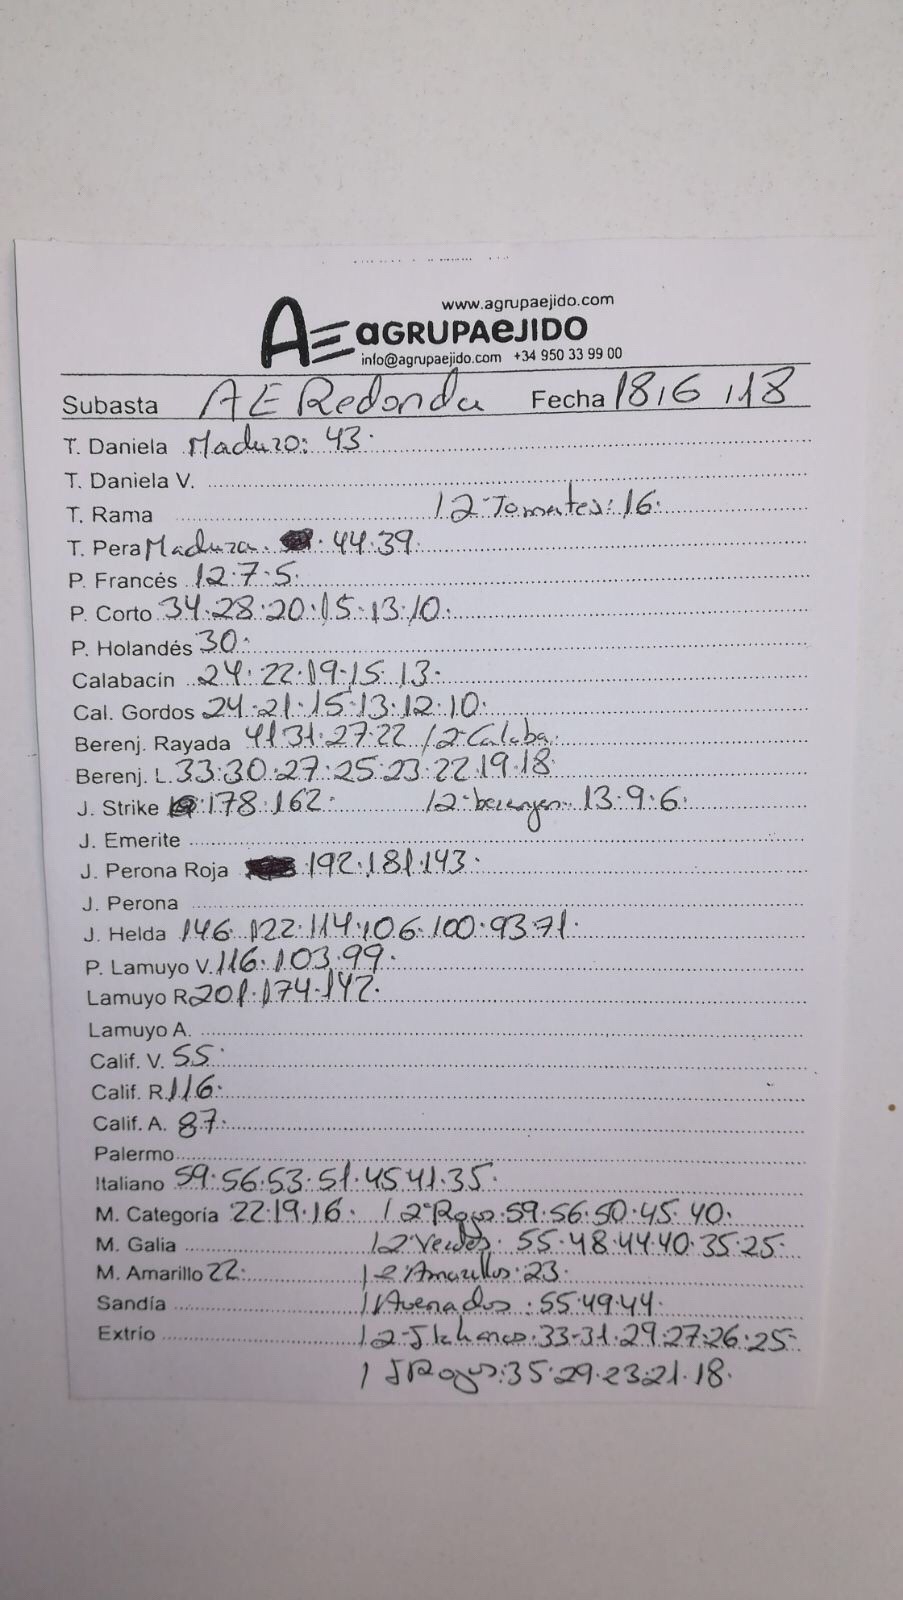 www.agrupaejido.com
AE aGRUPAeJIDO
info@agrupaejido.com +34 950 33 99 00
Subasta AE Redonda Fecha 18,6,18
T. Daniela Maduro: 43.
T. Daniela V.
T. Rama / 2ª Tomates: 16.
T. Pera Madura. 44.39.
P. Francés 12.7.5.
P. Corto 34.28.20.15.13.10.
P. Holandés 30.
Calabacín 24.22.19.15.13.
Cal. Gordos 24.21.15.13.12.10.
Berenj. Rayada 41.31.27.22 / 2ª Calaba.
Berenj. L 33.30.27.25.23.22.19.18
J. Strike 178.162. / 2ª berenjen. 13.9.6.
J. Emerite
J. Perona Roja 192.181.143.
J. Perona
J. Helda 146.122.114.106.100.93.71.
P. Lamuyo V. 116.103.99.
Lamuyo R 201.174.142.
Lamuyo A.
Calif. V. 55.
Calif. R. 116.
Calif. A. 87.
Palermo
Italiano 59.56.53.51.45.41.35.
M. Categoría 22.19.16. / 2ª Rojos: 59.56.50.45.40.
M. Galia / 2 Verdes: 55.48.44.40.35.25.
M. Amarillo 22. / 2 Amarillos: 23.
Sandía / Avenados: 55.49.44.
Extrío / 2ª Italianos: 33.31.29.27.26.25.
/ I Rojos: 35.29.23.21.18.